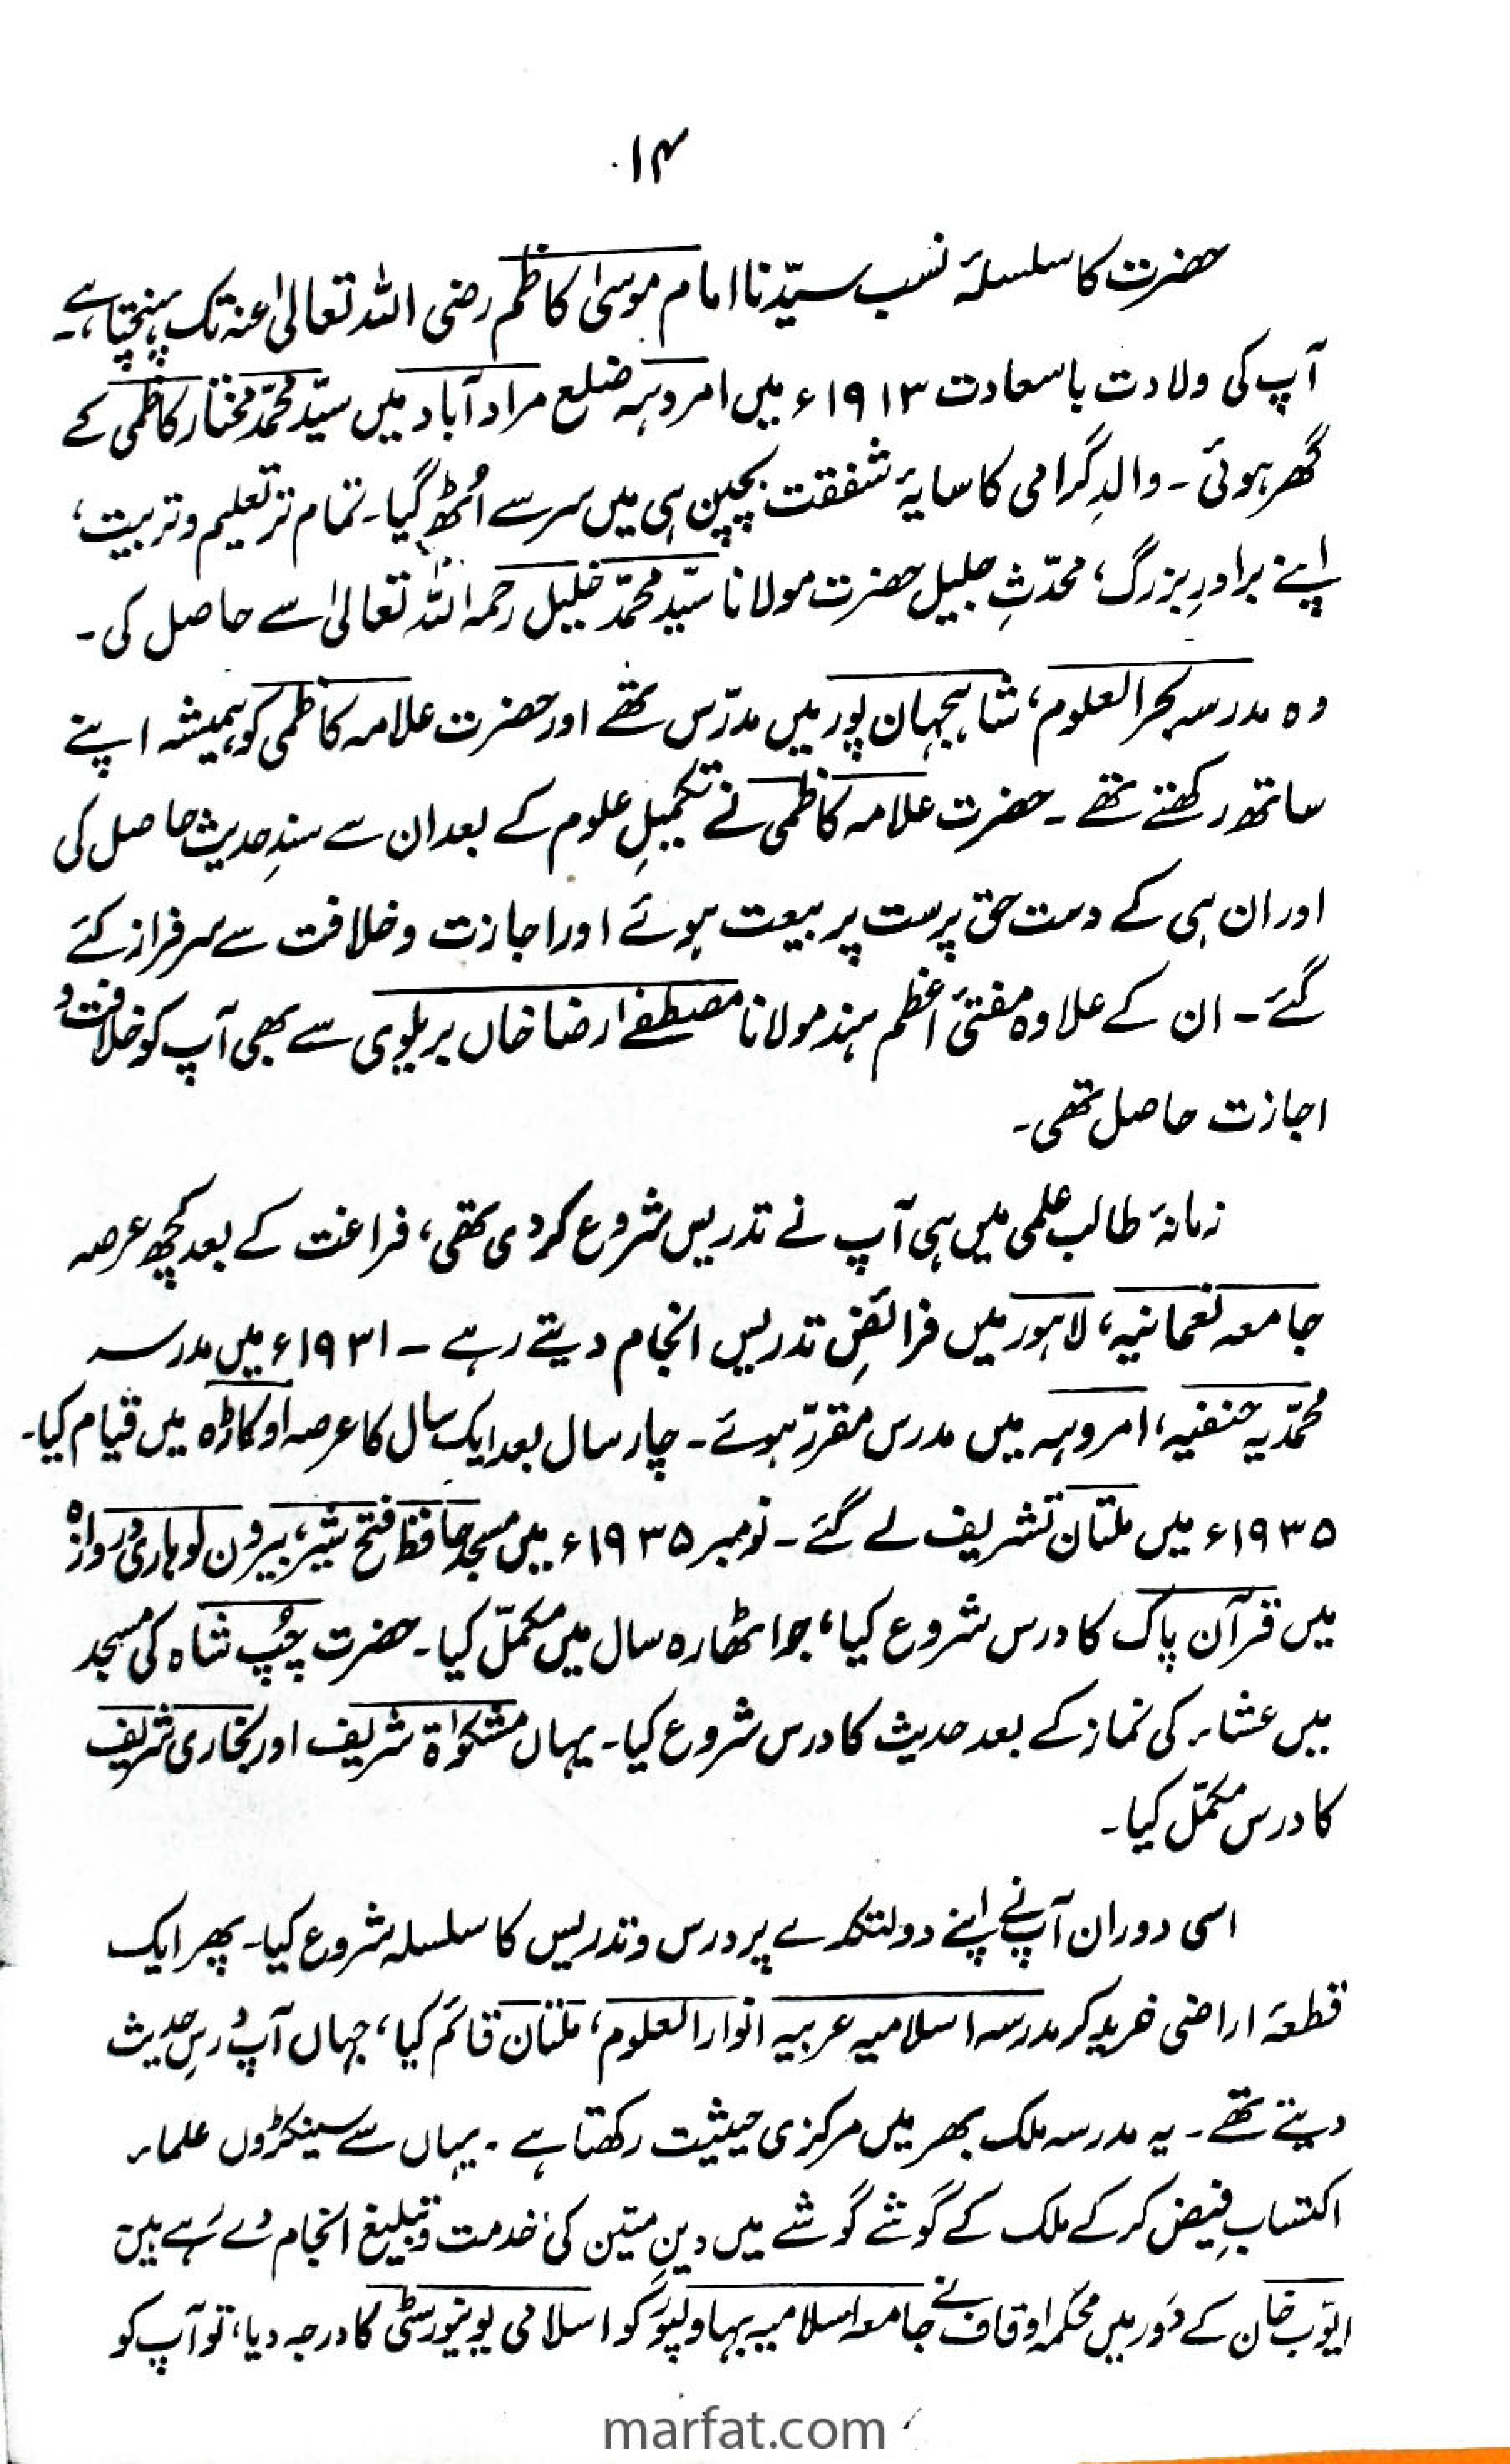 ۱۴
حضرت کا سلسلۂ نسب سیّدنا امام موسیٰ کاظم رضی اللہ تعالیٰ عنہ تک پہنچتا ہے۔
آپ کی ولادت باسعادت ۱۹۱۳ء میں امروہہ ضلع مراد آباد میں سیّد محمّد مختار کاظمی کے
گھر ہوئی۔ والدِ گرامی کا سایۂ شفقت بچپن ہی میں سر سے اُٹھ گیا۔ تمام تر تعلیم و تربیت،
اپنے برادرِ بزرگ، محدّثِ جلیل حضرت مولانا سیّد محمّد خلیل رحمہ اللہ تعالیٰ سے حاصل کی۔
وہ مدرسہ بحر العلوم، شاہجہان پور میں مدرّس تھے اور حضرت علامہ کاظمی کو ہمیشہ اپنے
ساتھ رکھتے تھے۔ حضرت علامہ کاظمی نے تکمیلِ علوم کے بعد ان سے سندِ حدیث حاصل کی
اور ان ہی کے دست حق پرست پر بیعت ہوئے اور اجازت و خلافت سے سرفراز کئے
گئے۔ ان کے علاوہ مفتیٔ اعظم ہند مولانا مصطفےٰ رضا خاں بریلوی سے بھی آپ کو خلافت و
اجازت حاصل تھی۔
زمانۂ طالب علمی میں ہی آپ نے تدریس شروع کر دی تھی، فراغت کے بعد کچھ عرصہ
جامعہ نعمانیہ، لاہور میں فرائضِ تدریس انجام دیتے رہے۔ ۱۹۳۱ء میں مدرسہ
محمّدیہ حنفیہ، امروہہ میں مدرس مقررّ ہوئے۔ چار سال بعد ایک سال کا عرصہ اوکاڑہ میں قیام کیا۔
۱۹۳۵ء میں ملتان تشریف لے گئے۔ نومبر ۱۹۳۵ء میں مسجد حافظ فتح شیر، بیرون لوہاری دروازہ
میں قرآن پاک کا درس شروع کیا، جو اٹھارہ سال میں مکمّل کیا۔ حضرت چُپ شاہ کی مسجد
میں عشاء کی نماز کے بعد حدیث کا درس شروع کیا۔ یہاں مشکوٰۃ شریف اور بخاری شریف
کا درس مکمّل کیا۔
اسی دوران آپ نے اپنے دولتکدے پر درس و تدریس کا سلسلہ شروع کیا۔ پھر ایک
قطعۂ اراضی خرید کر مدرسہ اسلامیہ عربیہ انوار العلوم، ملتان قائم کیا، جہاں آپ درسِ حدیث
دیتے تھے۔ یہ مدرسہ ملک بھر میں مرکزی حیثیت رکھتا ہے۔ یہاں سے سینکڑوں علماء
اکتسابِ فیض کر کے ملک کے گوشے گوشے میں دینِ متین کی خدمت و تبلیغ انجام دے رہے ہیں
ایّوب خان کے دَور میں محکمہ اوقاف نے جامعہ اسلامیہ بہاولپور کو اسلامی یونیورسٹی کا درجہ دیا، تو آپ کو
marfat.com